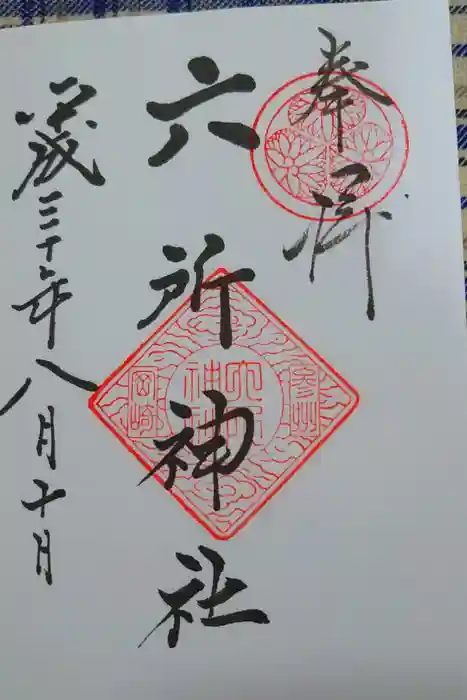 奉拝
六所神社
平成三十年八月十日
參州
六所
神社
岡崎